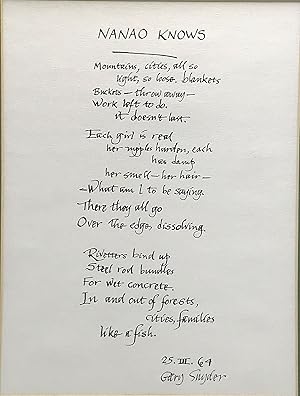 NANAO KNOWS
Mountains, cities, all so
light, so loose. blankets
Buckets — throw away —
Work left to do.
it doesn't last.
Each girl is real
her nipples harden, each
has damp
her smell — her hair —
— What am I to be saying.
There they all go
Over the edge, dissolving.
Rivetters bind up
Steel rod bundles
For wet concrete.
In and out of forests,
cities, families
like a fish.
25. III. 64
Gary Snyder